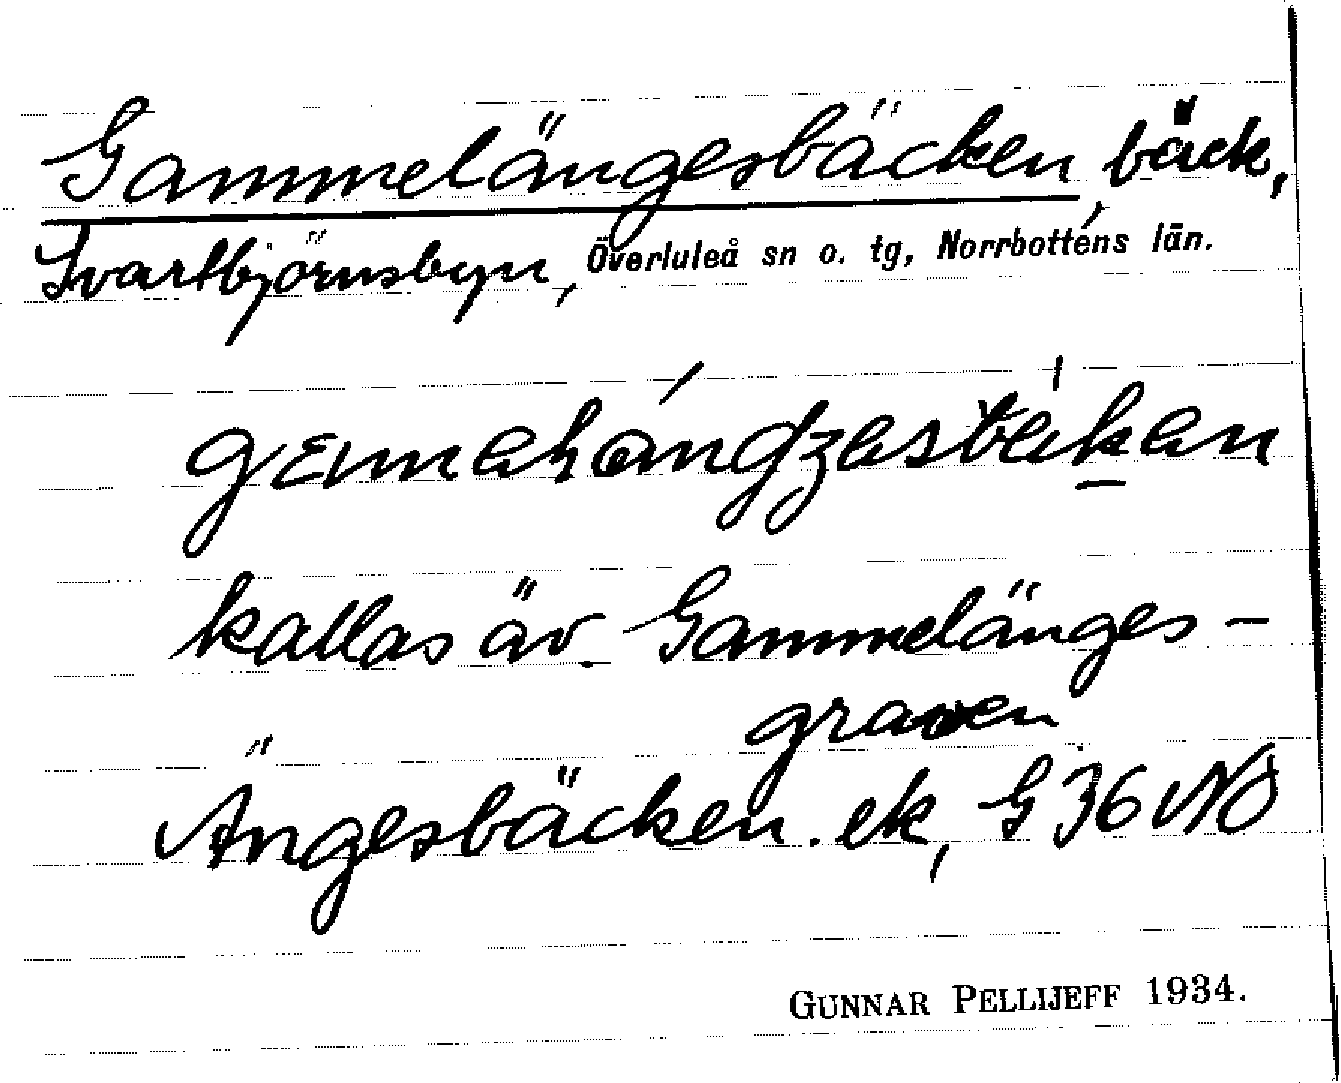 Gammelängesbäcken, bäck,
Svartbjörnsbyn, Överluleå sn o. tg, Norrbottens län.
kallas äv. Gammelänges-
graven
Ängesbäcken. ek, G 36 NO
GUNNAR PELLIJEFF 1934.